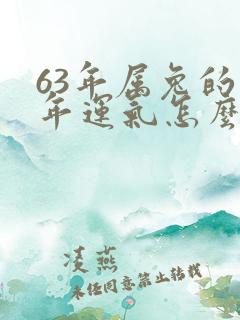 63年属兔的
年运气怎么
凌燕
未经同意禁止转载